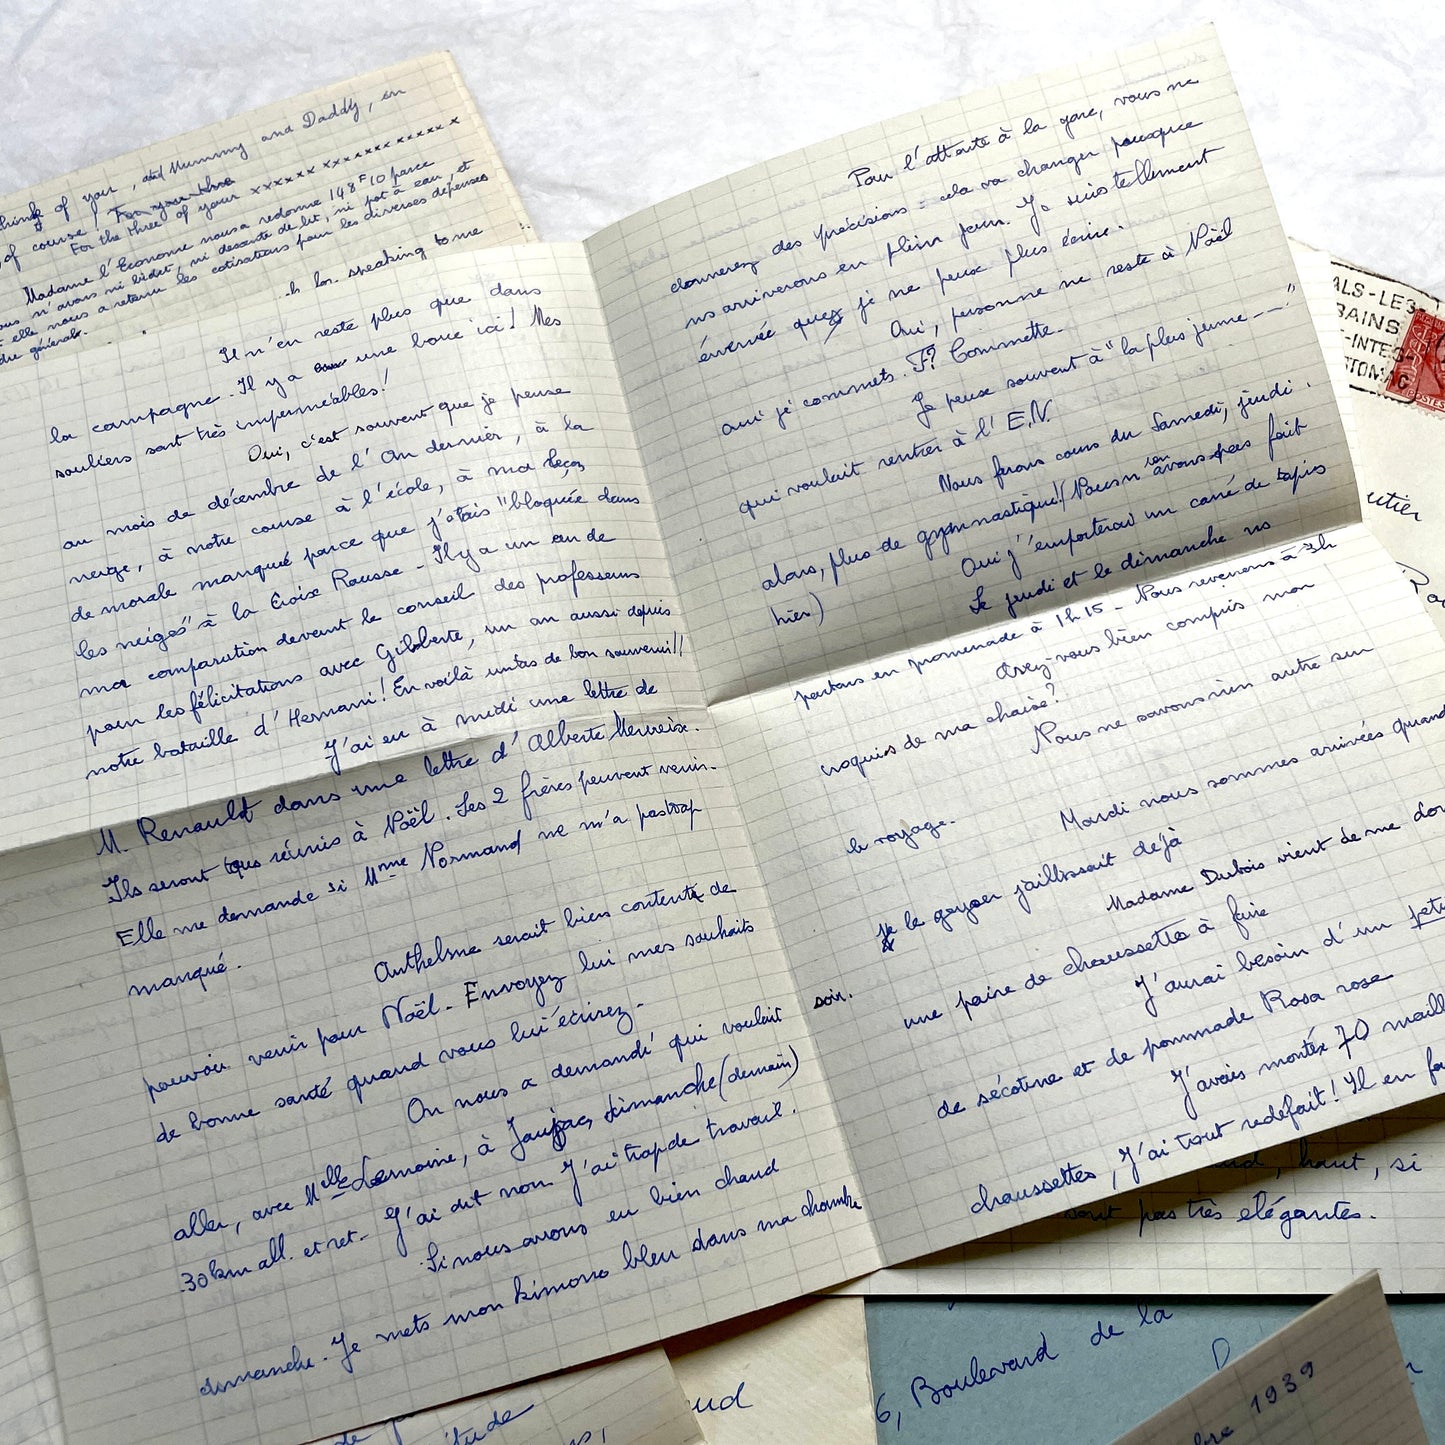 things of your, and Mummy and Daddy, in
of course! For you three
For the three of your xxxxxx xxxxxxxxxxxx x
Madame l'Econome nous a redonné 148F10 parce
nous n'avons ni bidet, ni descente de lit, ni pot à eau, et
elle nous a retenu les cotisations pour les diverses dépenses
générales.
speaking to me
Il n'en reste plus que dans
la campagne. Il y a une boue ici! Mes
souliers sont très imperméables!
Oui, c'est souvent que je pense
au mois de décembre de l'an dernier, à la
neige, à notre course à l'école, à ma leçon
de morale manquée parce que j'étais "bloquée dans
les neiges" à la Croix Rousse - Il y a un an de
ma comparution devant le conseil des professeurs
pour les félicitations avec Gilberte, un an aussi depuis
notre bataille d'Hernani! En voilà un tas de bon souvenir!!
J'ai eu à midi une lettre de
M. Renault dans une lettre d'Alberte Merveix.
Ils seront tous réunis à Noël. Les 2 frères peuvent venir.
Elle me demande si Mme Normand ne m'a pas trop
manqué.
Anthelme serait bien contente de
pouvoir venir pour Noël - Envoyez lui mes souhaits
de bonne santé quand vous lui écrirez -
On nous a demandé qui voulait
aller, avec Mlle Lemoine, à Jaujac, dimanche (demain)
30 km all. et ret - J'ai dit non J'ai trop de travail.
Si nous avons eu bien chaud
dimanche. Je mets mon kimono bleu dans ma chambre
Pour l'attente à la gare, vous me
donnerez des précisions - cela va changer puisque
ns arriverons en plein jour. Je suis tellement
énervée que je ne peux plus écrire.
Oui, personne ne reste à Noël
oui j'ai commets. F? Commette.
Je pense souvent à "la plus jeune --"
qui voulait rentrer à l'E.N.
Nous ferons cours du Samedi, jeudi.
alors, plus de gymnastique! (Nous n'en avons pas fait
hier)
Oui j'emporterai un carré de tapis
Le jeudi et le dimanche ns
partons en promenade à 1h15 - Nous revenons à 3h
Avez-vous bien compris mon
croquis de ma chaise?
Nous ne savons rien autre sur
le voyage.
Mardi nous sommes arrivées quand
le geyser jaillissait déjà
Madame Dubois vient de me
soir.
une paire de chaussettes à faire
J'aurai besoin d'un
de sécotine et de pommade Rosa rose
J'avais montée 70
chaussettes, j'ai tout redéfait! Il en
haut, si
sont pas très élégantes.
ALS-LES-
BAINS
-INTES-
STOMAC
POSTES
6, Boulevard de la
1939